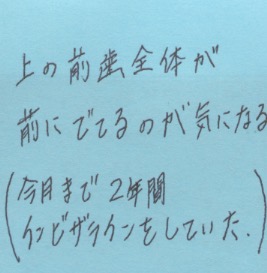 上の前歯全体が
前にでてるのが気になる
(今月まで2年間
インビザラインをしていた.)